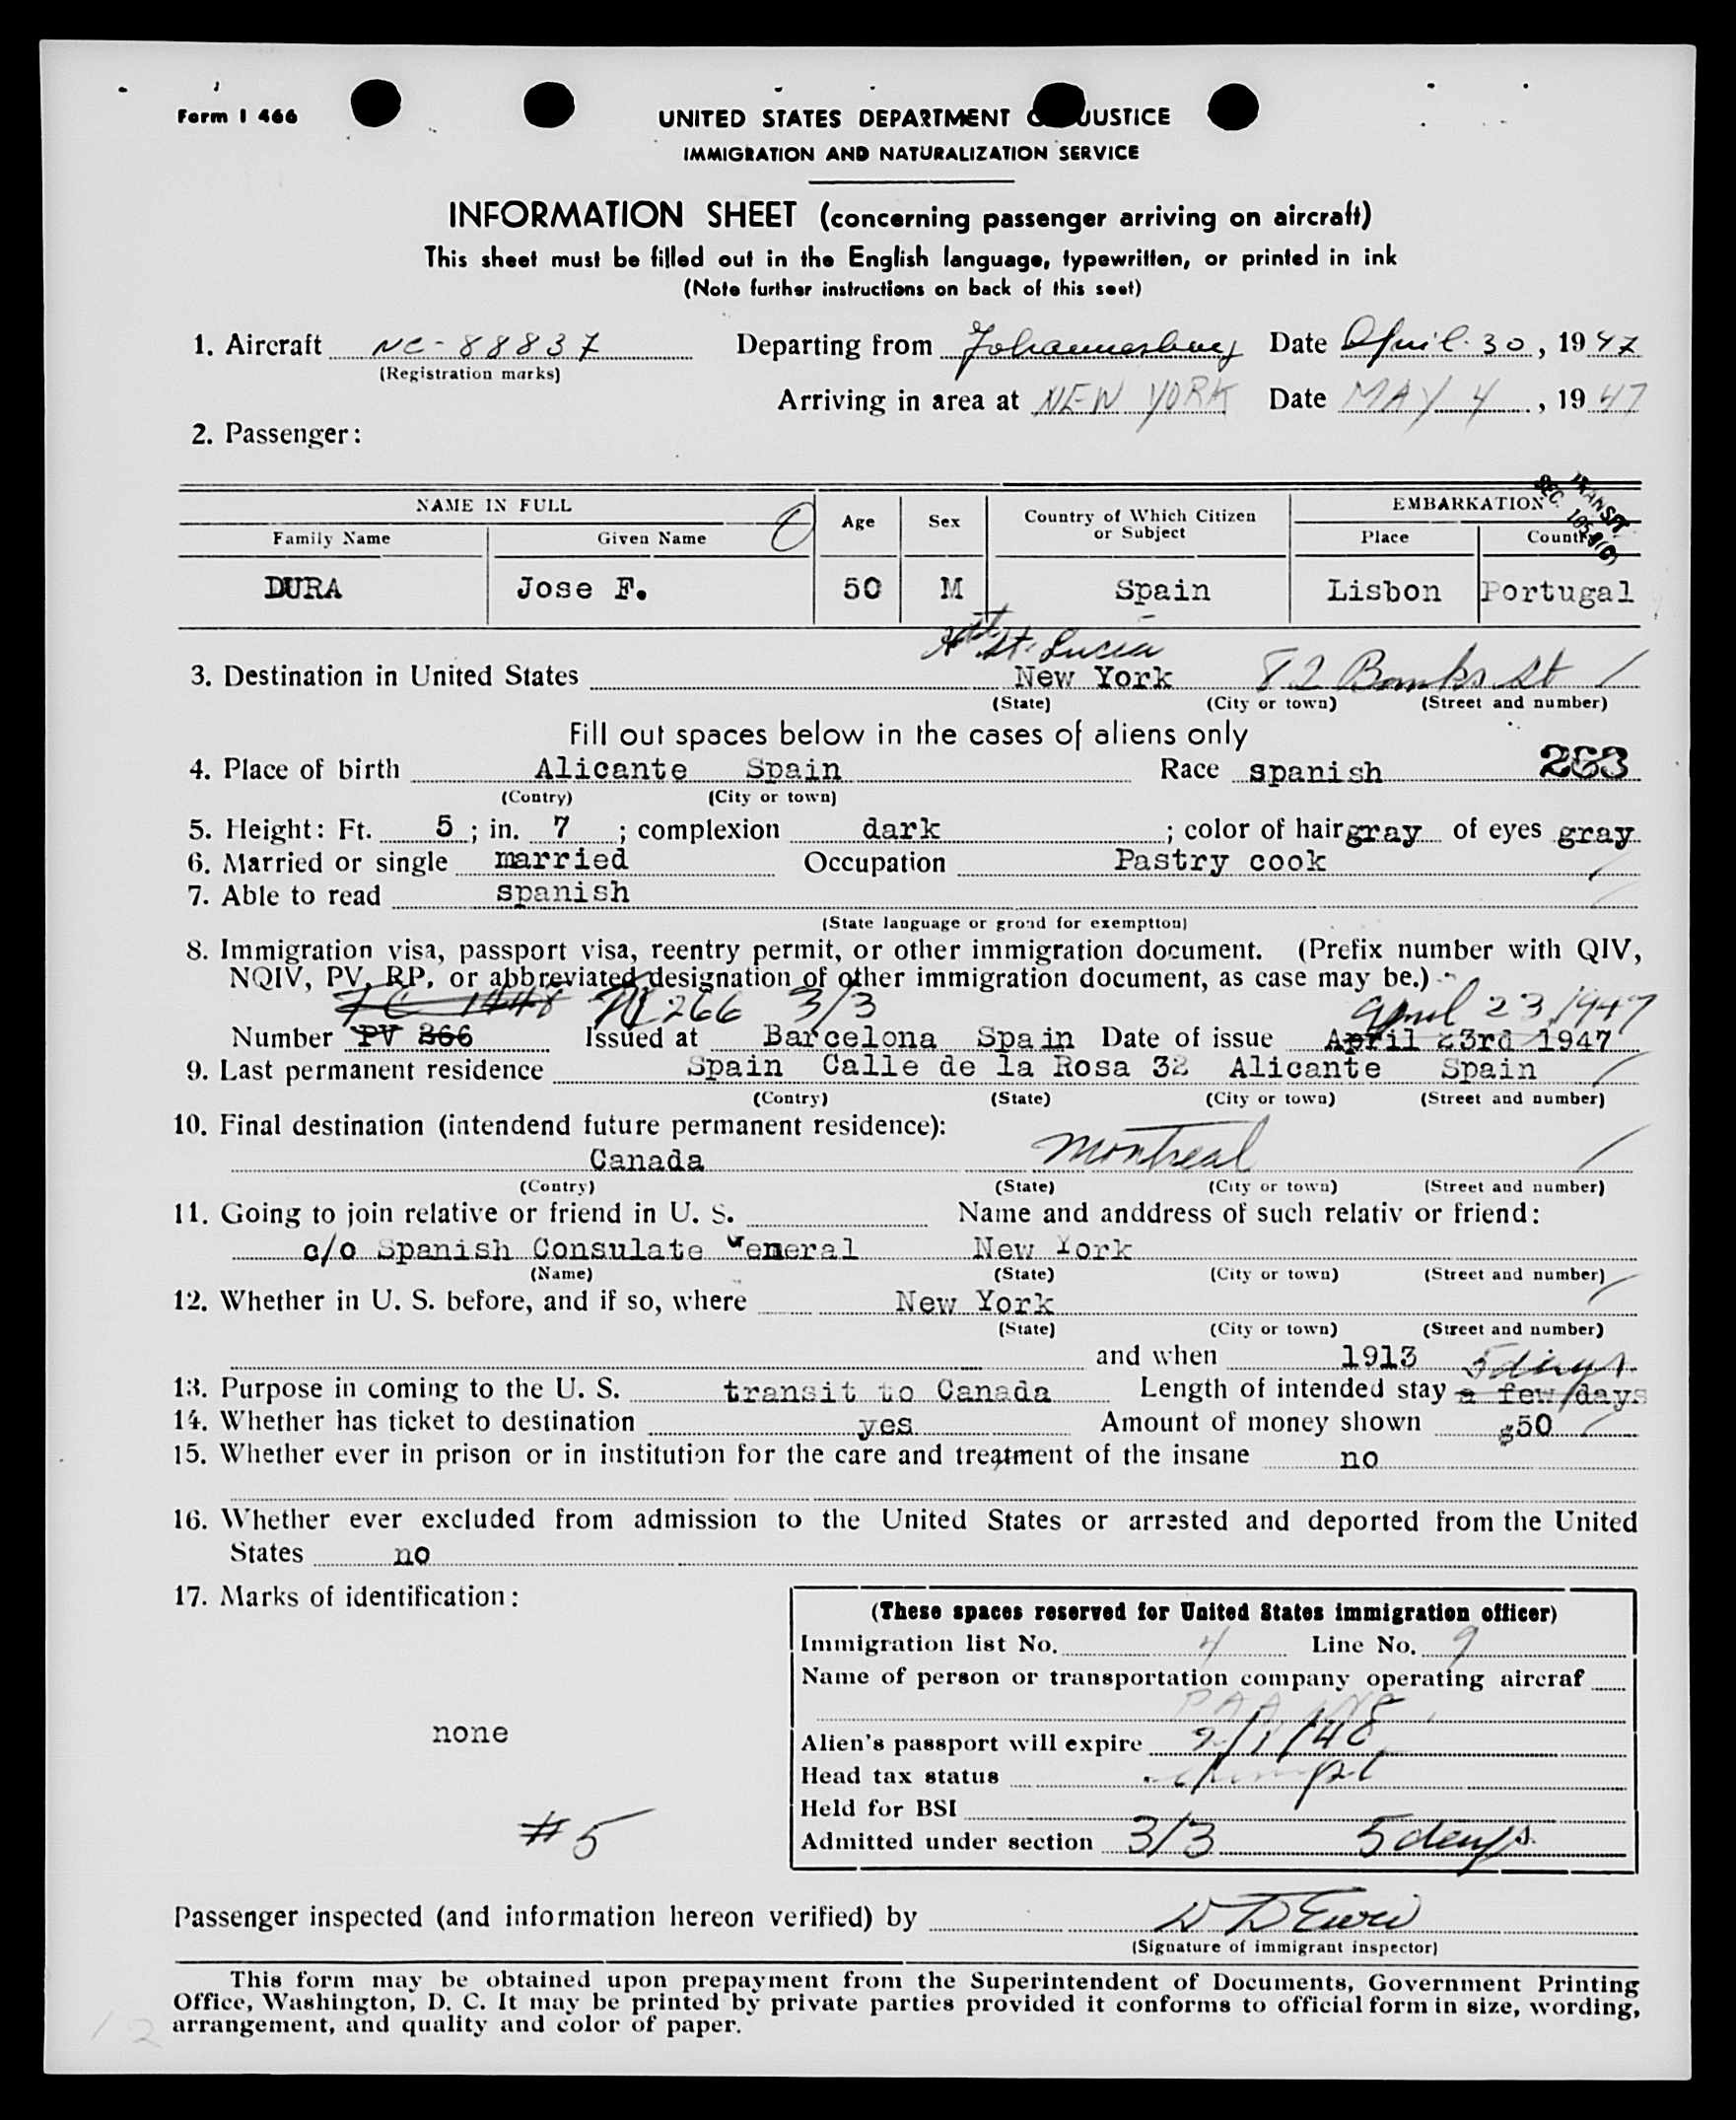 Form I 466
UNITED STATES DEPARTMENT JUSTICE
IMMIGRATION AND NATURALIZATION SERVICE
INFORMATION SHEET (concerning passenger arriving on aircraft)
This sheet must be filled out in the English language, typewritten, or printed in ink
(Note further instructions on back of this seet)
1. Aircraft NC-88837 Departing from Johannesburg Date April 30, 1947
(Registration marks)
Arriving in area at NEW YORK Date MAY 4, 1947
2. Passenger:
TRANSIT
SEC.
NAME IN FULL Age Sex Country of Which Citizen or Subject EMBARKATION
Family Name Given Name Place Country
DURA Jose F. 50 M Spain Lisbon Portugal
St. Lucia
3. Destination in United States New York 82 Banks St
(State) (City or town) (Street and number)
Fill out spaces below in the cases of aliens only
4. Place of birth Alicante Spain Race spanish 263
(Contry) (City or town)
5. Height: Ft. 5; in. 7; complexion dark; color of hair gray of eyes gray
6. Married or single married Occupation Pastry cook
7. Able to read spanish
(State language or groud for exemption)
8. Immigration visa, passport visa, reentry permit, or other immigration document. (Prefix number with QIV,
NQIV, PV, RP, or abbreviated designation of other immigration document, as case may be.)
266 3/3 April 23 1947
Number PV 366 Issued at Barcelona Spain Date of issue April 23rd 1947
9. Last permanent residence Spain Calle de la Rosa 32 Alicante Spain
(Contry) (State) (City or town) (Street and number)
10. Final destination (intendend future permanent residence):
Canada Montreal
(Contry) (State) (City or town) (Street and number)
11. Going to join relative or friend in U. S. Name and anddress of such relativ or friend:
c/o Spanish Consulate General New York
(Name) (State) (City or town) (Street and number)
12. Whether in U. S. before, and if so, where New York
(State) (City or town) (Street and number)
and when 1913 5 days
13. Purpose in coming to the U. S. transit to Canada Length of intended stay a few days
14. Whether has ticket to destination yes Amount of money shown $50
15. Whether ever in prison or in institution for the care and treatment of the insane no
16. Whether ever excluded from admission to the United States or arrested and deported from the United
States no
17. Marks of identification:
none
#5
(These spaces reserved for United States immigration officer)
Immigration list No. 4 Line No. 9
Name of person or transportation company operating aircraf
PAA INC
Alien's passport will expire 2/1/48
Head tax status
Held for BSI
Admitted under section 3/3 5 days
Passenger inspected (and information hereon verified) by
(Signature of immigrant inspector)
This form may be obtained upon prepayment from the Superintendent of Documents, Government Printing
Office, Washington, D. C. It may be printed by private parties provided it conforms to official form in size, wording,
arrangement, and quality and color of paper.
12